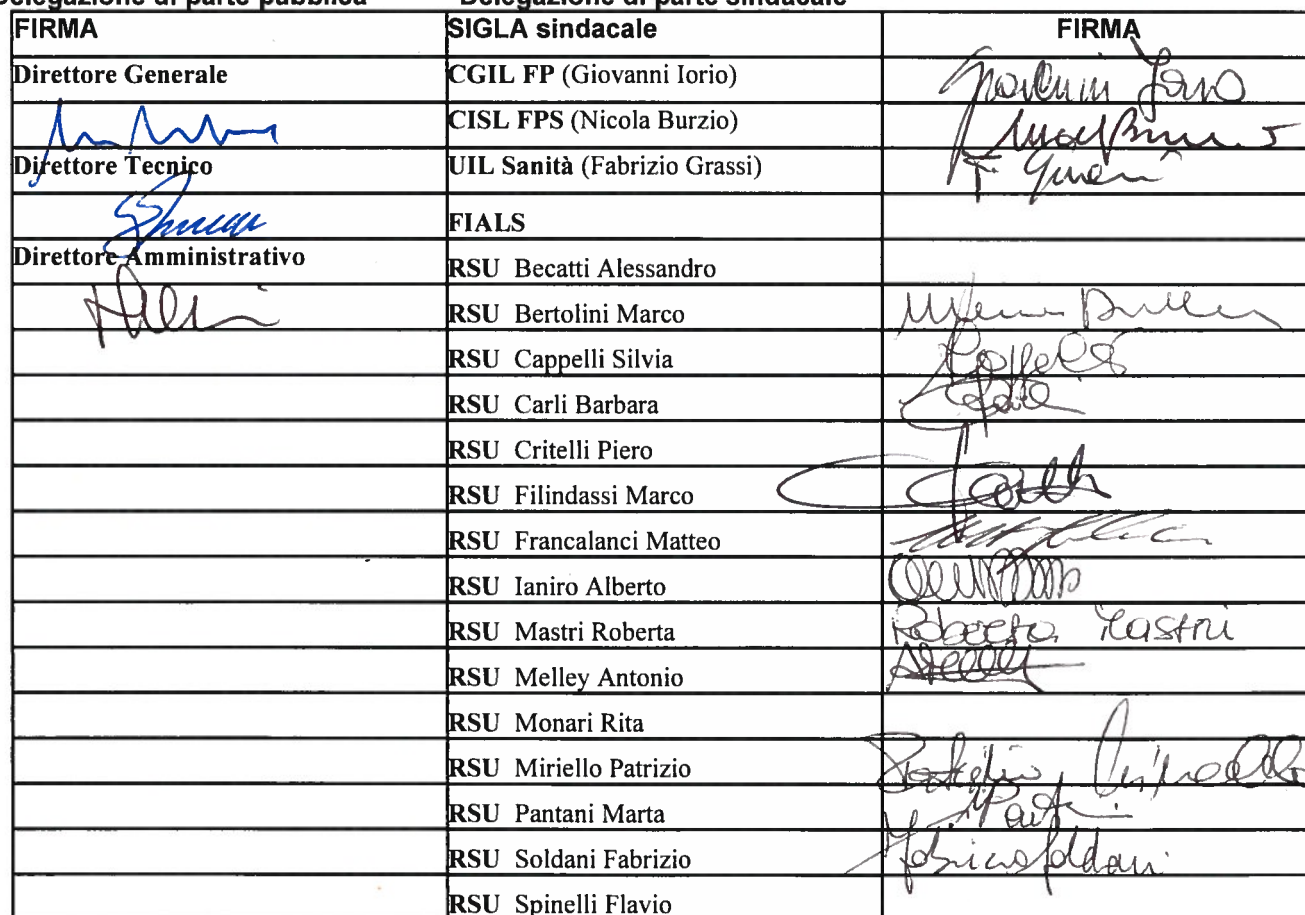 Delegazione di parte pubblica Delegazione di parte sindacale
FIRMA SIGLA sindacale FIRMA
Direttore Generale CGIL FP (Giovanni Iorio)
CISL FPS (Nicola Burzio)
Direttore Tecnico UIL Sanità (Fabrizio Grassi)
FIALS
Direttore Amministrativo
RSU Becatti Alessandro
RSU Bertolini Marco
RSU Cappelli Silvia
RSU Carli Barbara
RSU Critelli Piero
RSU Filindassi Marco
RSU Francalanci Matteo
RSU Ianiro Alberto
RSU Mastri Roberta Roberta Mastri
RSU Melley Antonio
RSU Monari Rita
RSU Miriello Patrizio
RSU Pantani Marta
RSU Soldani Fabrizio Fabrizio Soldani
RSU Spinelli Flavio